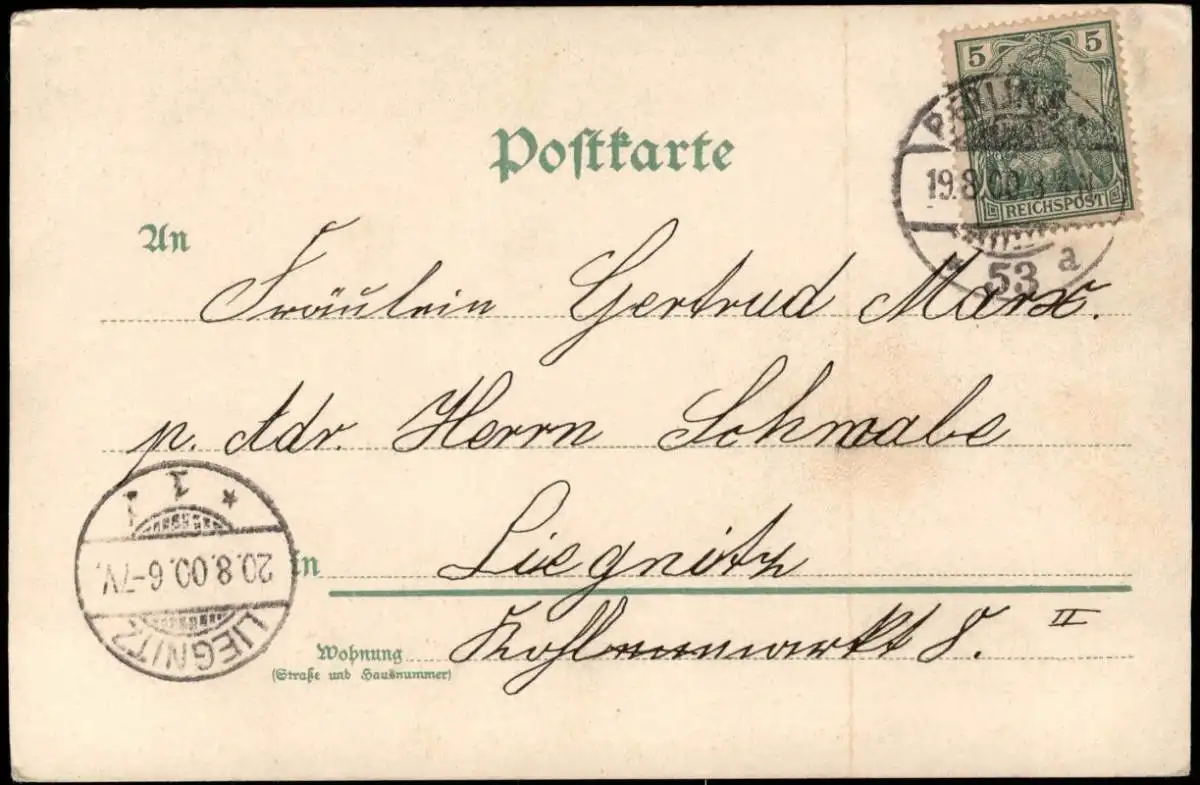 5 5
REICHSPOST
BERLIN
19.8.00.
* 53 a
Postkarte
An
Fräulein Gertrud Marx.
p. Adr. Herrn Schwabe
in Liegnitz
Wohnung Kohlenmarkt 8. II
(Straße und Hausnummer)
LIEGNITZ
20.8.00.6-7V.
* 1 1